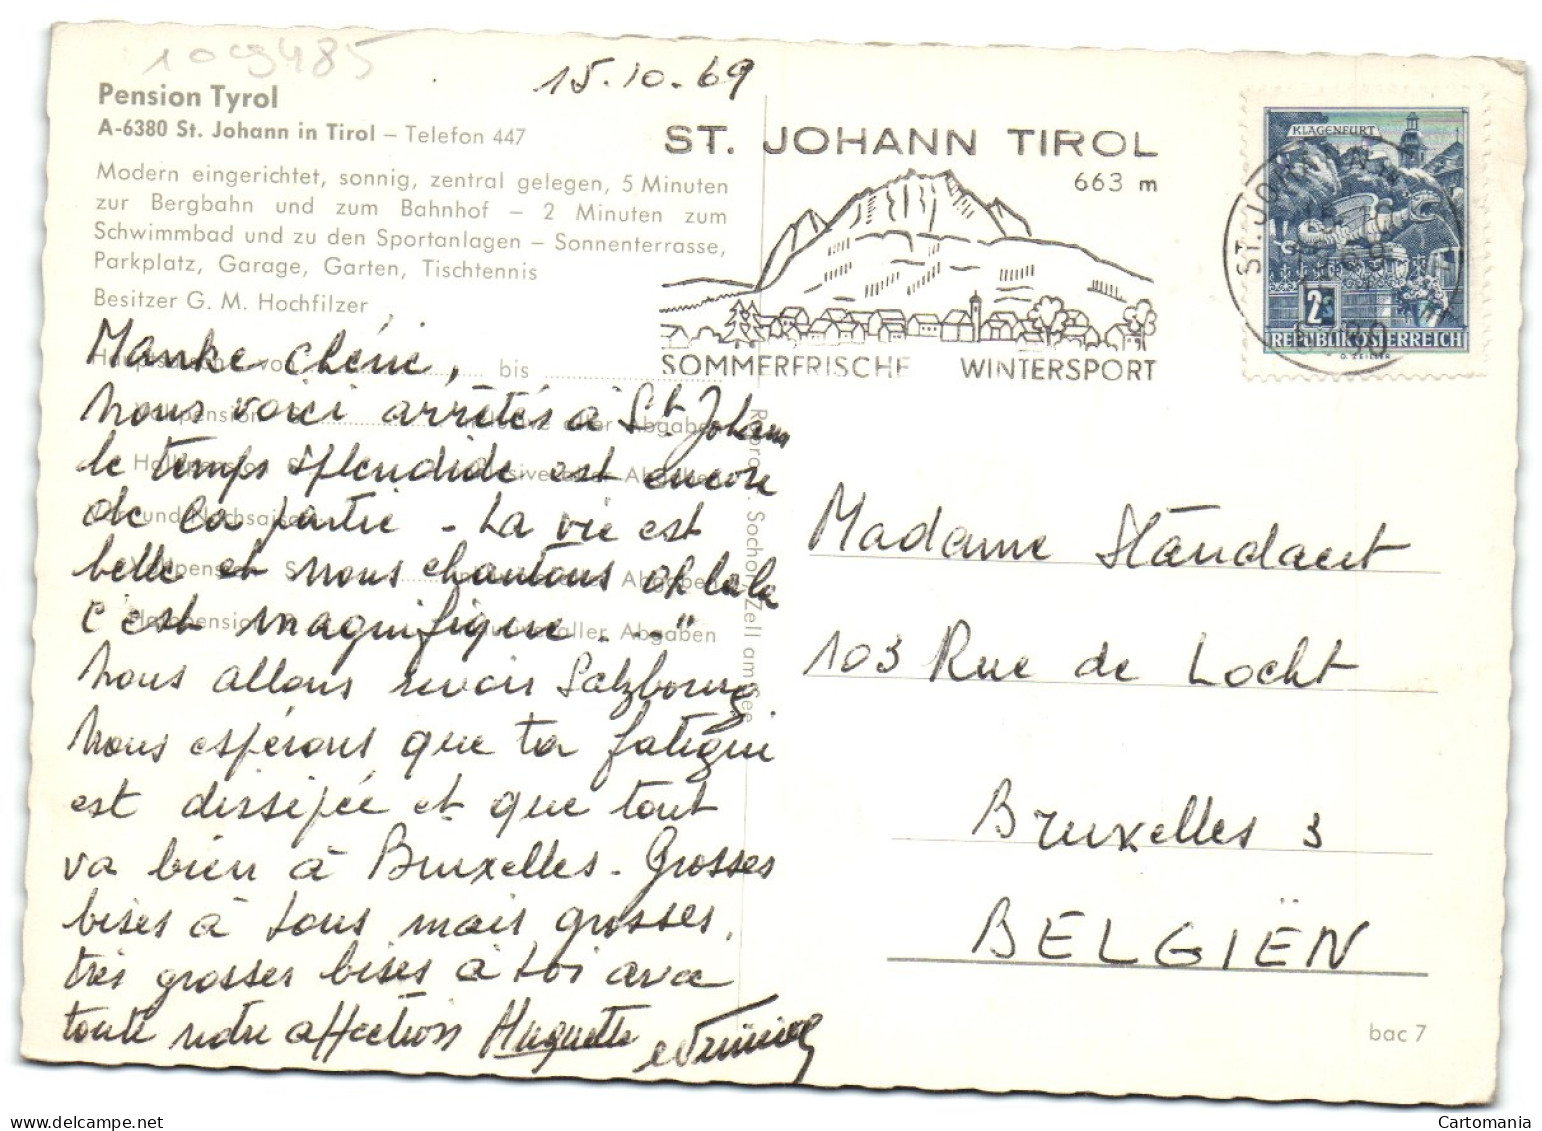 1093485
15.10.69
Pension Tyrol
A-6380 St. Johann in Tirol – Telefon 447
Modern eingerichtet, sonnig, zentral gelegen, 5 Minuten
zur Bergbahn und zum Bahnhof – 2 Minuten zum
Schwimmbad und zu den Sportanlagen – Sonnenterrasse,
Parkplatz, Garage, Garten, Tischtennis
Besitzer G. M. Hochfilzer
bis
Abgaben
Abgaben
und Nachsaison
Abgaben
aller Abgaben
Manke chérie,
nous voici arrêtés à St. Johann
le temps splendide est encore
de la partie - La vie est
belle et nous chantons oh lala
c'est magnifique - - "
Nous allons revoir Salzbourg
Nous espérons que ta fatigue
est dissipée et que tout
va bien à Bruxelles - Grosses
bises à tous mais grosses,
très grosses bises à toi avec
toute notre affection Huguette
Sochor, Zell am See
ST. JOHANN TIROL
663 m
SOMMERFRISCHE WINTERSPORT
KLAGENFURT
2S
REPUBLIK ÖSTERREICH
ST. JOHANN
Madame Standaert
103 Rue de Locht
Bruxelles 3
BELGIËN
bac 7
Cartomania
www.delcampe.net